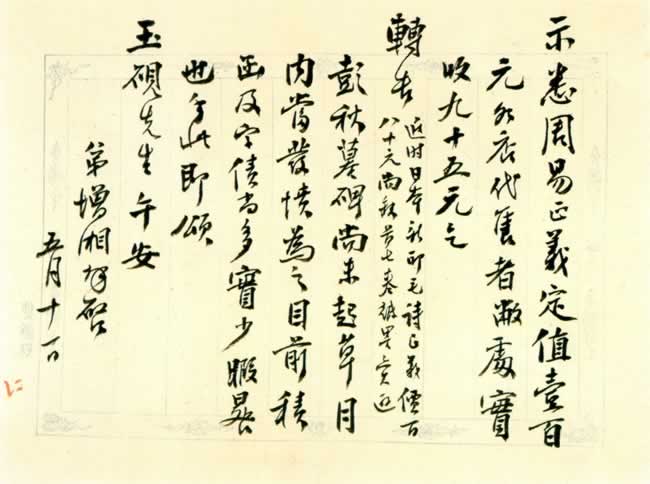 示悉周易正義定值壹百
元各店代售者敝處實
收九十五元乞
轉告
近時日本新印毛詩正義價百
八十元尚缺首七卷
彭秋墓碑尚未起草月
內當發憤為之目前積
函及字債尚多實少暇晷
也手此即頌
玉硯先生午安
弟增湘拜啓
五月十一日